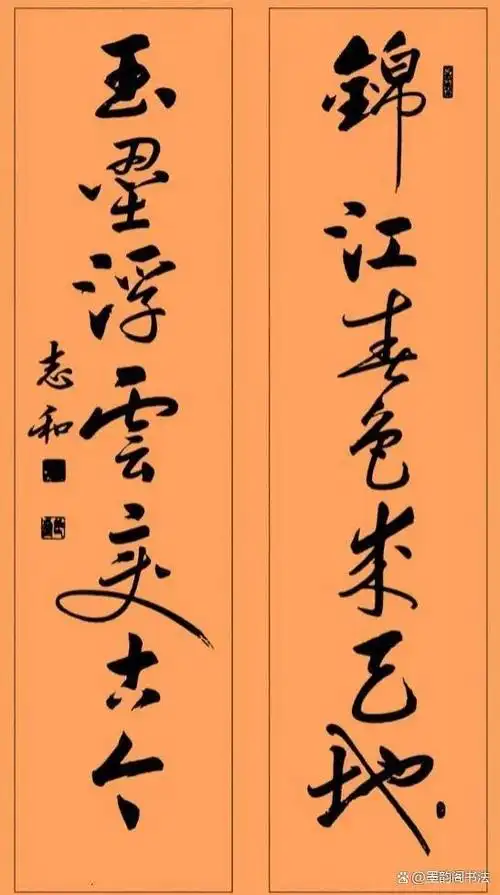 錦江春色来天地
玉壘浮雲變古今
志和
墨韵阁书法